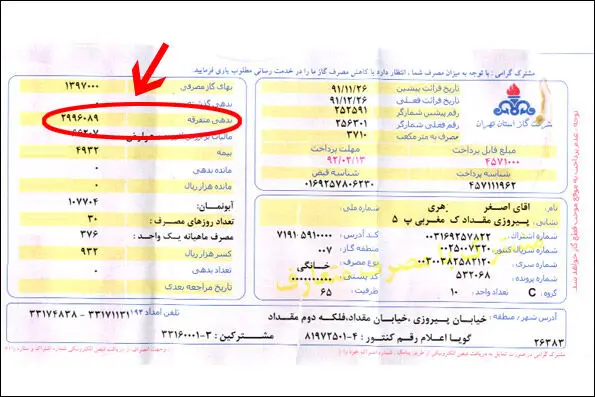 مشترک گرامی: با توجه به میزان مصرف شما، انتظار دارد با کاهش مصرف گاز ما را در خدمت رسانی مطلوب یاری فرمایید
شرکت گاز استان تهران
تاریخ قرائت پیشین ۹۱/۱۱/۲۶
تاریخ قرائت فعلی ۹۱/۱۲/۲۶
رقم پیشین شمارگر ۲۵۲۵۹۱
رقم فعلی شمارگر ۲۵۶۳۰۱
مصرف به متر مکعب ۳۷۱۰
مبلغ قابل پرداخت ۴۵۷۱۰۰۰
مهلت پرداخت ۹۲/۰۲/۱۳
شناسه پرداخت ۴۵۷۱۱۱۹۶۲
شناسه قبض ۰۱۶۹۲۵۷۸۰۶۲۳۰
بهای گاز مصرفی ۱۳۹۷۰۰۰
بدهی گذشته ۰
بدهی متفرقه ۲۹۹۶۰۸۹
بیمه ۴۹۳۲
مانده بدهی
مانده هزار ریال
آبونمان: ۱۰۷۷۰۴
تعداد روزهای مصرف: ۳۰
مصرف ماهیانه یک واحد: ۳۷۶
کسر هزار ریال ۹۳۲
تعداد بدهی ۰
تاریخ مراجعه بعدی
نام: اقای اصغر هری
شماره ملی:
نشانی: پیروزی مقداد ک مغربی پ ۵
شماره اشتراک: ۰۰۳۱۶۹۲۵۷۸۲۲
کد آدرس: ۷۱۹۱۵۹۱۰۰۰۰
شماره سریال کنتور: ۰۰۲۵۰۰۷۳۲۰
منطقه گاز: ۰۰۷
شماره سری: ۰۰۳۰۰۳۸۲۵۸۲۱۲۰
نوع مصرف: خانگی
شماره پرونده: ۵۳۲۰۶۸
کد پستی: ۰۰۰۰۰۰۰۰۰۰
گروه: C تعداد واحد: ۱۰ ظرفیت: ۶۵
آدرس شهر/منطقه: خیابان پیروزی، خیابان مقداد، فلکه دوم مقداد
امداد تلفن ۱۹۴ ۳۳۱۷۱۱۳۱ - ۳۳۱۷۴۸۳۸
۲۶۳۸۳ گویا اعلام رقم کنتور: ۴-۸۱۹۷۲۵۰۱ مشترکین: ۳-۳۳۱۶۰۰۰۱